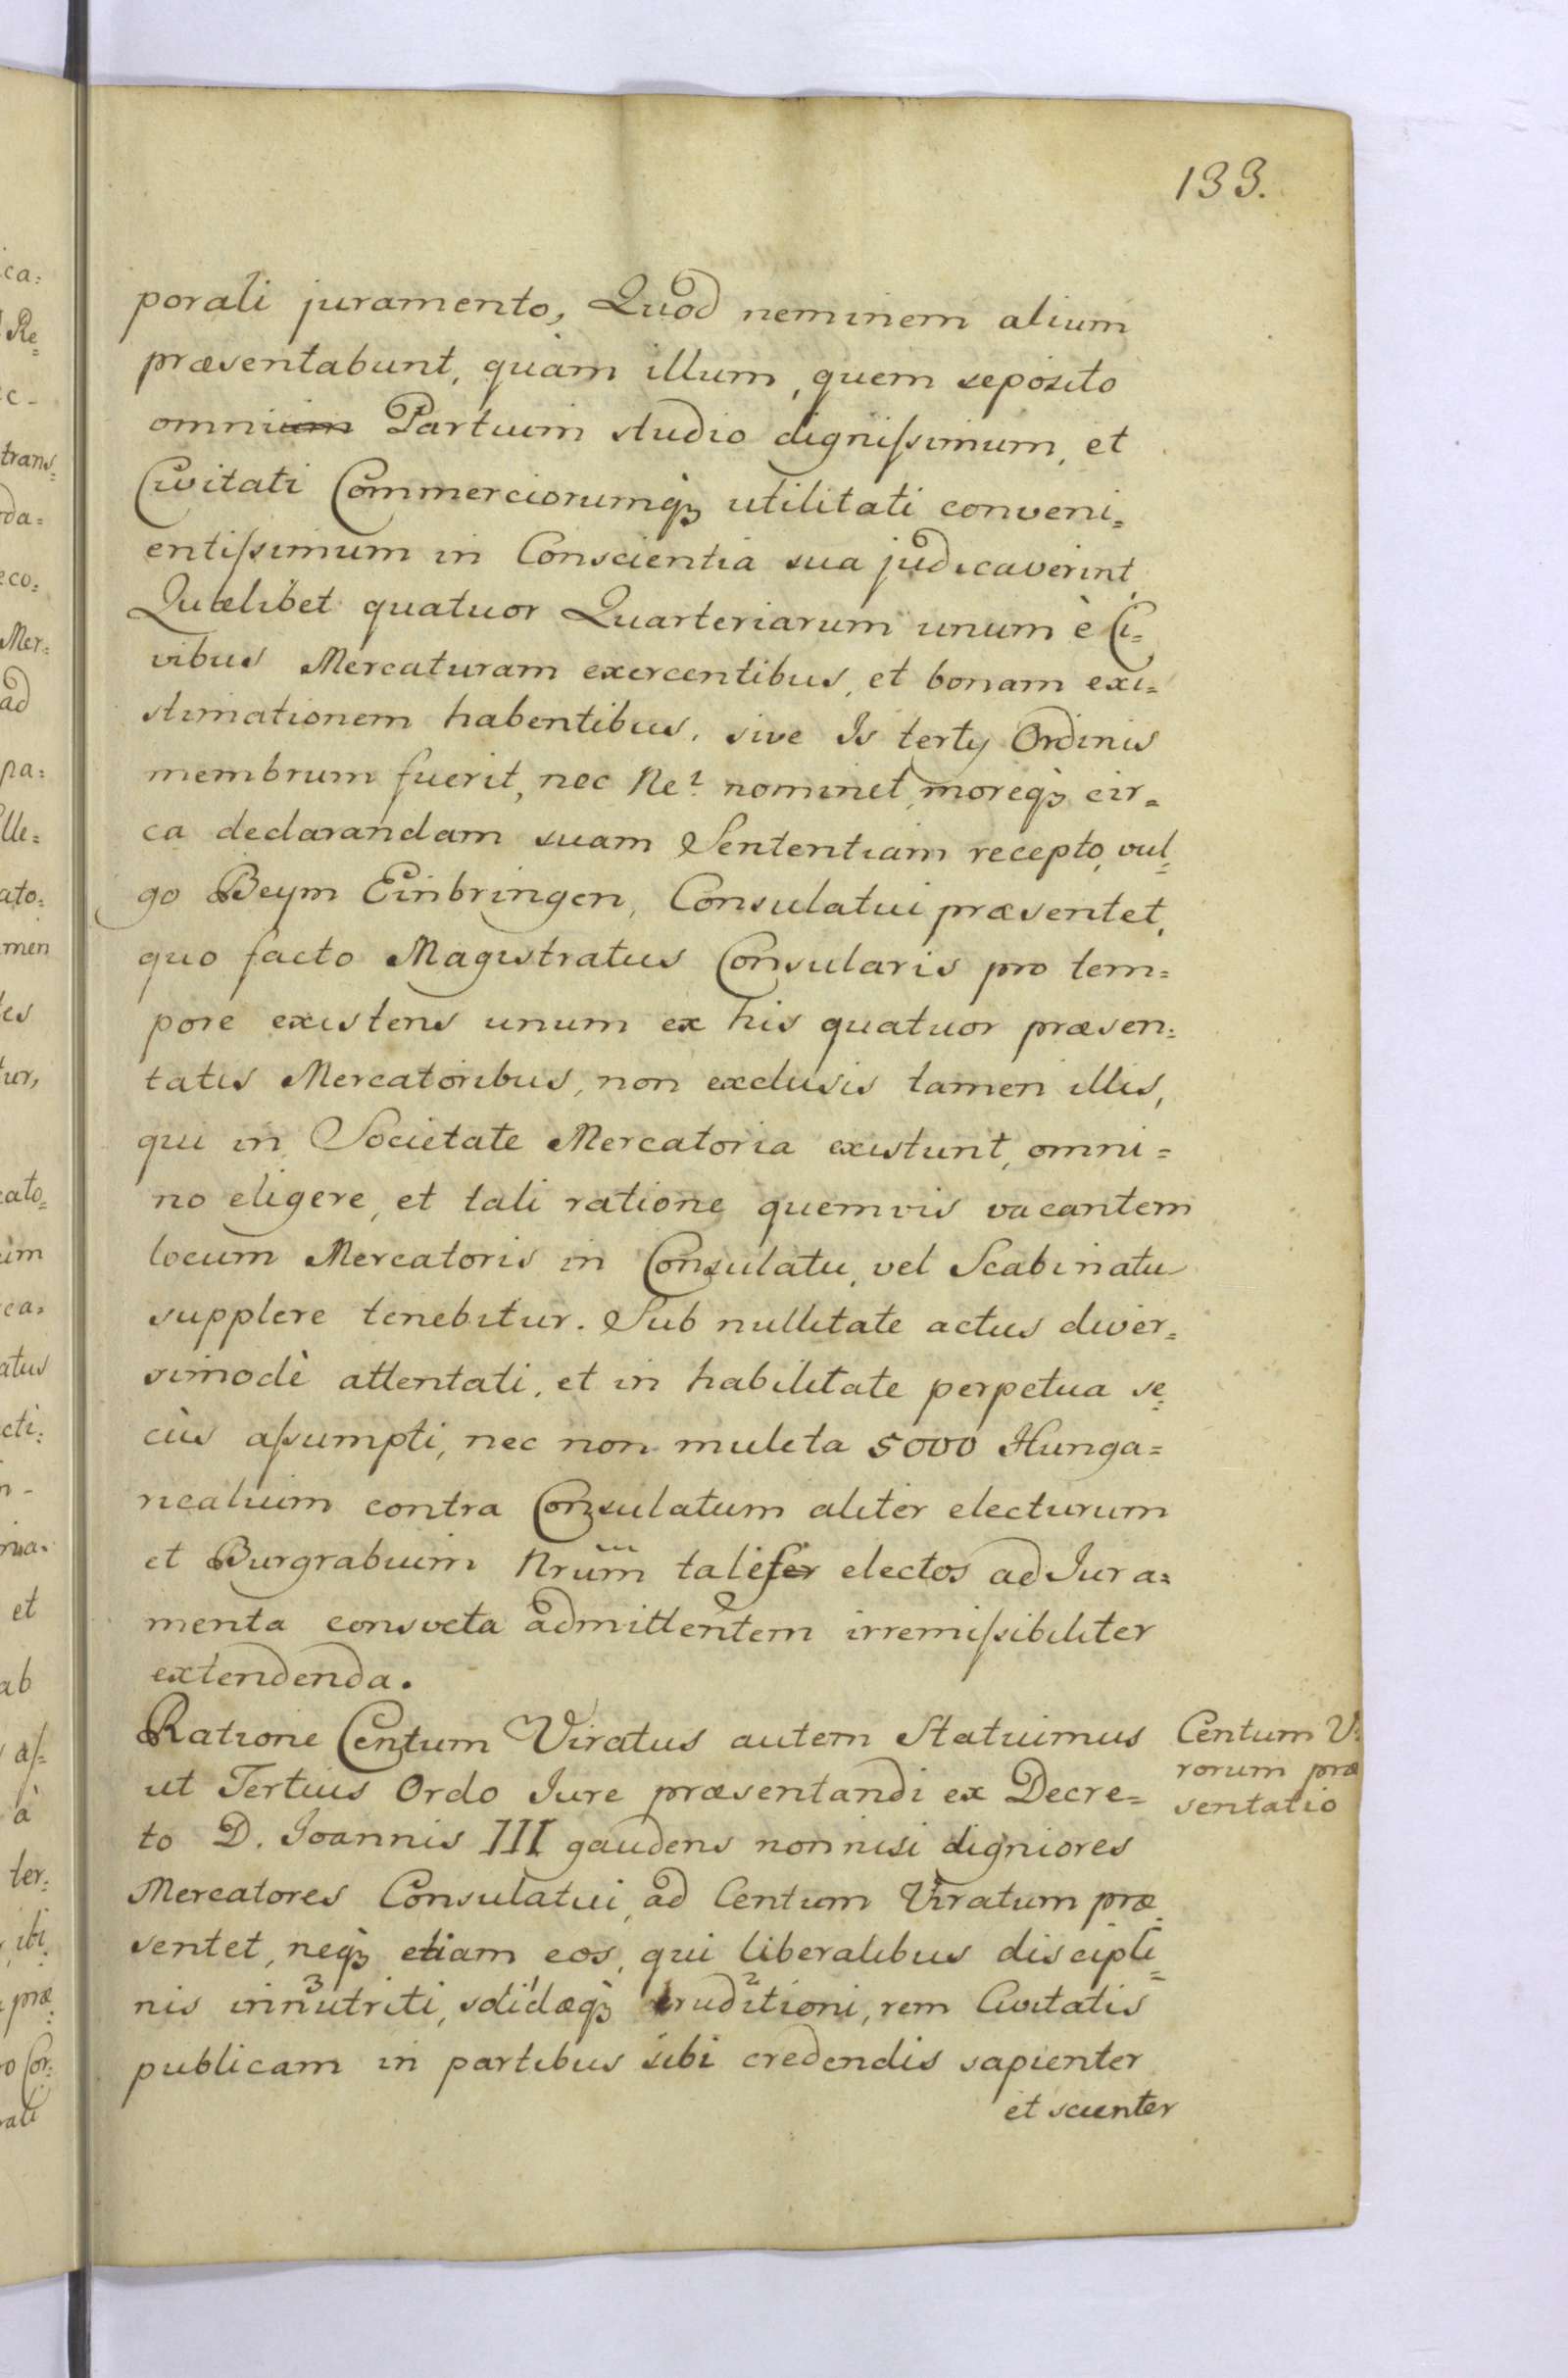 133.
porali juramento, Quod neminem alium
præsentabunt, quàm illum, quem seposito
omnium Partium studio digniſsimum, et
Civitati Commerciorumqꝫ utilitati conveni=
entiſsimum in Conscientia sua judicaverint,
Quælibet quatuor Quarteriarum unum è Ci=
vibus Mercaturam exercentibus, et bonam exi=
stimationem habentibus, sive Is tertij Ordinis
membrum fuerit, nec ne? nominet, moreqꝫ cir=
ca declarandam suam Sententiam recepto, vul=
go Beym Einbringen, Consulatui præsentet,
quo facto Magistratus Consularis pro tem=
pore existens unum ex his quatuor præsen=
tatis Mercatoribus, non exclusis tamen illis,
qui in Societate Mercatoria existunt, omni=
no eligere, et tali ratione quemvis vacantem
locum Mercatoris in Consulatu, vel Scabinatu
supplere tenebitur. Sub nullitate actus diver=
simodè attentati, et in habilitate perpetua se=
cùs aſsumpti, nec non mulcta 5000 Hunga=
ricalium contra Consulatum aliter electurum
et Burgrabium Nrum̃ electos ad Jura=
menta consveta admittentem irremiſsibiliter
extendenda.
Ratione Centum Viratus autem Statuimus
ut Tertius Ordo Jure præsentandi ex Decre=
to D. Joannis III gaudens non nisi digniores
Mercatores Consulatui, ad Centum Viratum præ=
sentet, neqꝫ etiam eos, qui liberalibus discipli=
nis innutriti, solidæqꝫ eruditioni, rem Civitatis
publicam in partibus sibi credendis sapienter
et scienter
Centum Vi
rorum præ
sentatio